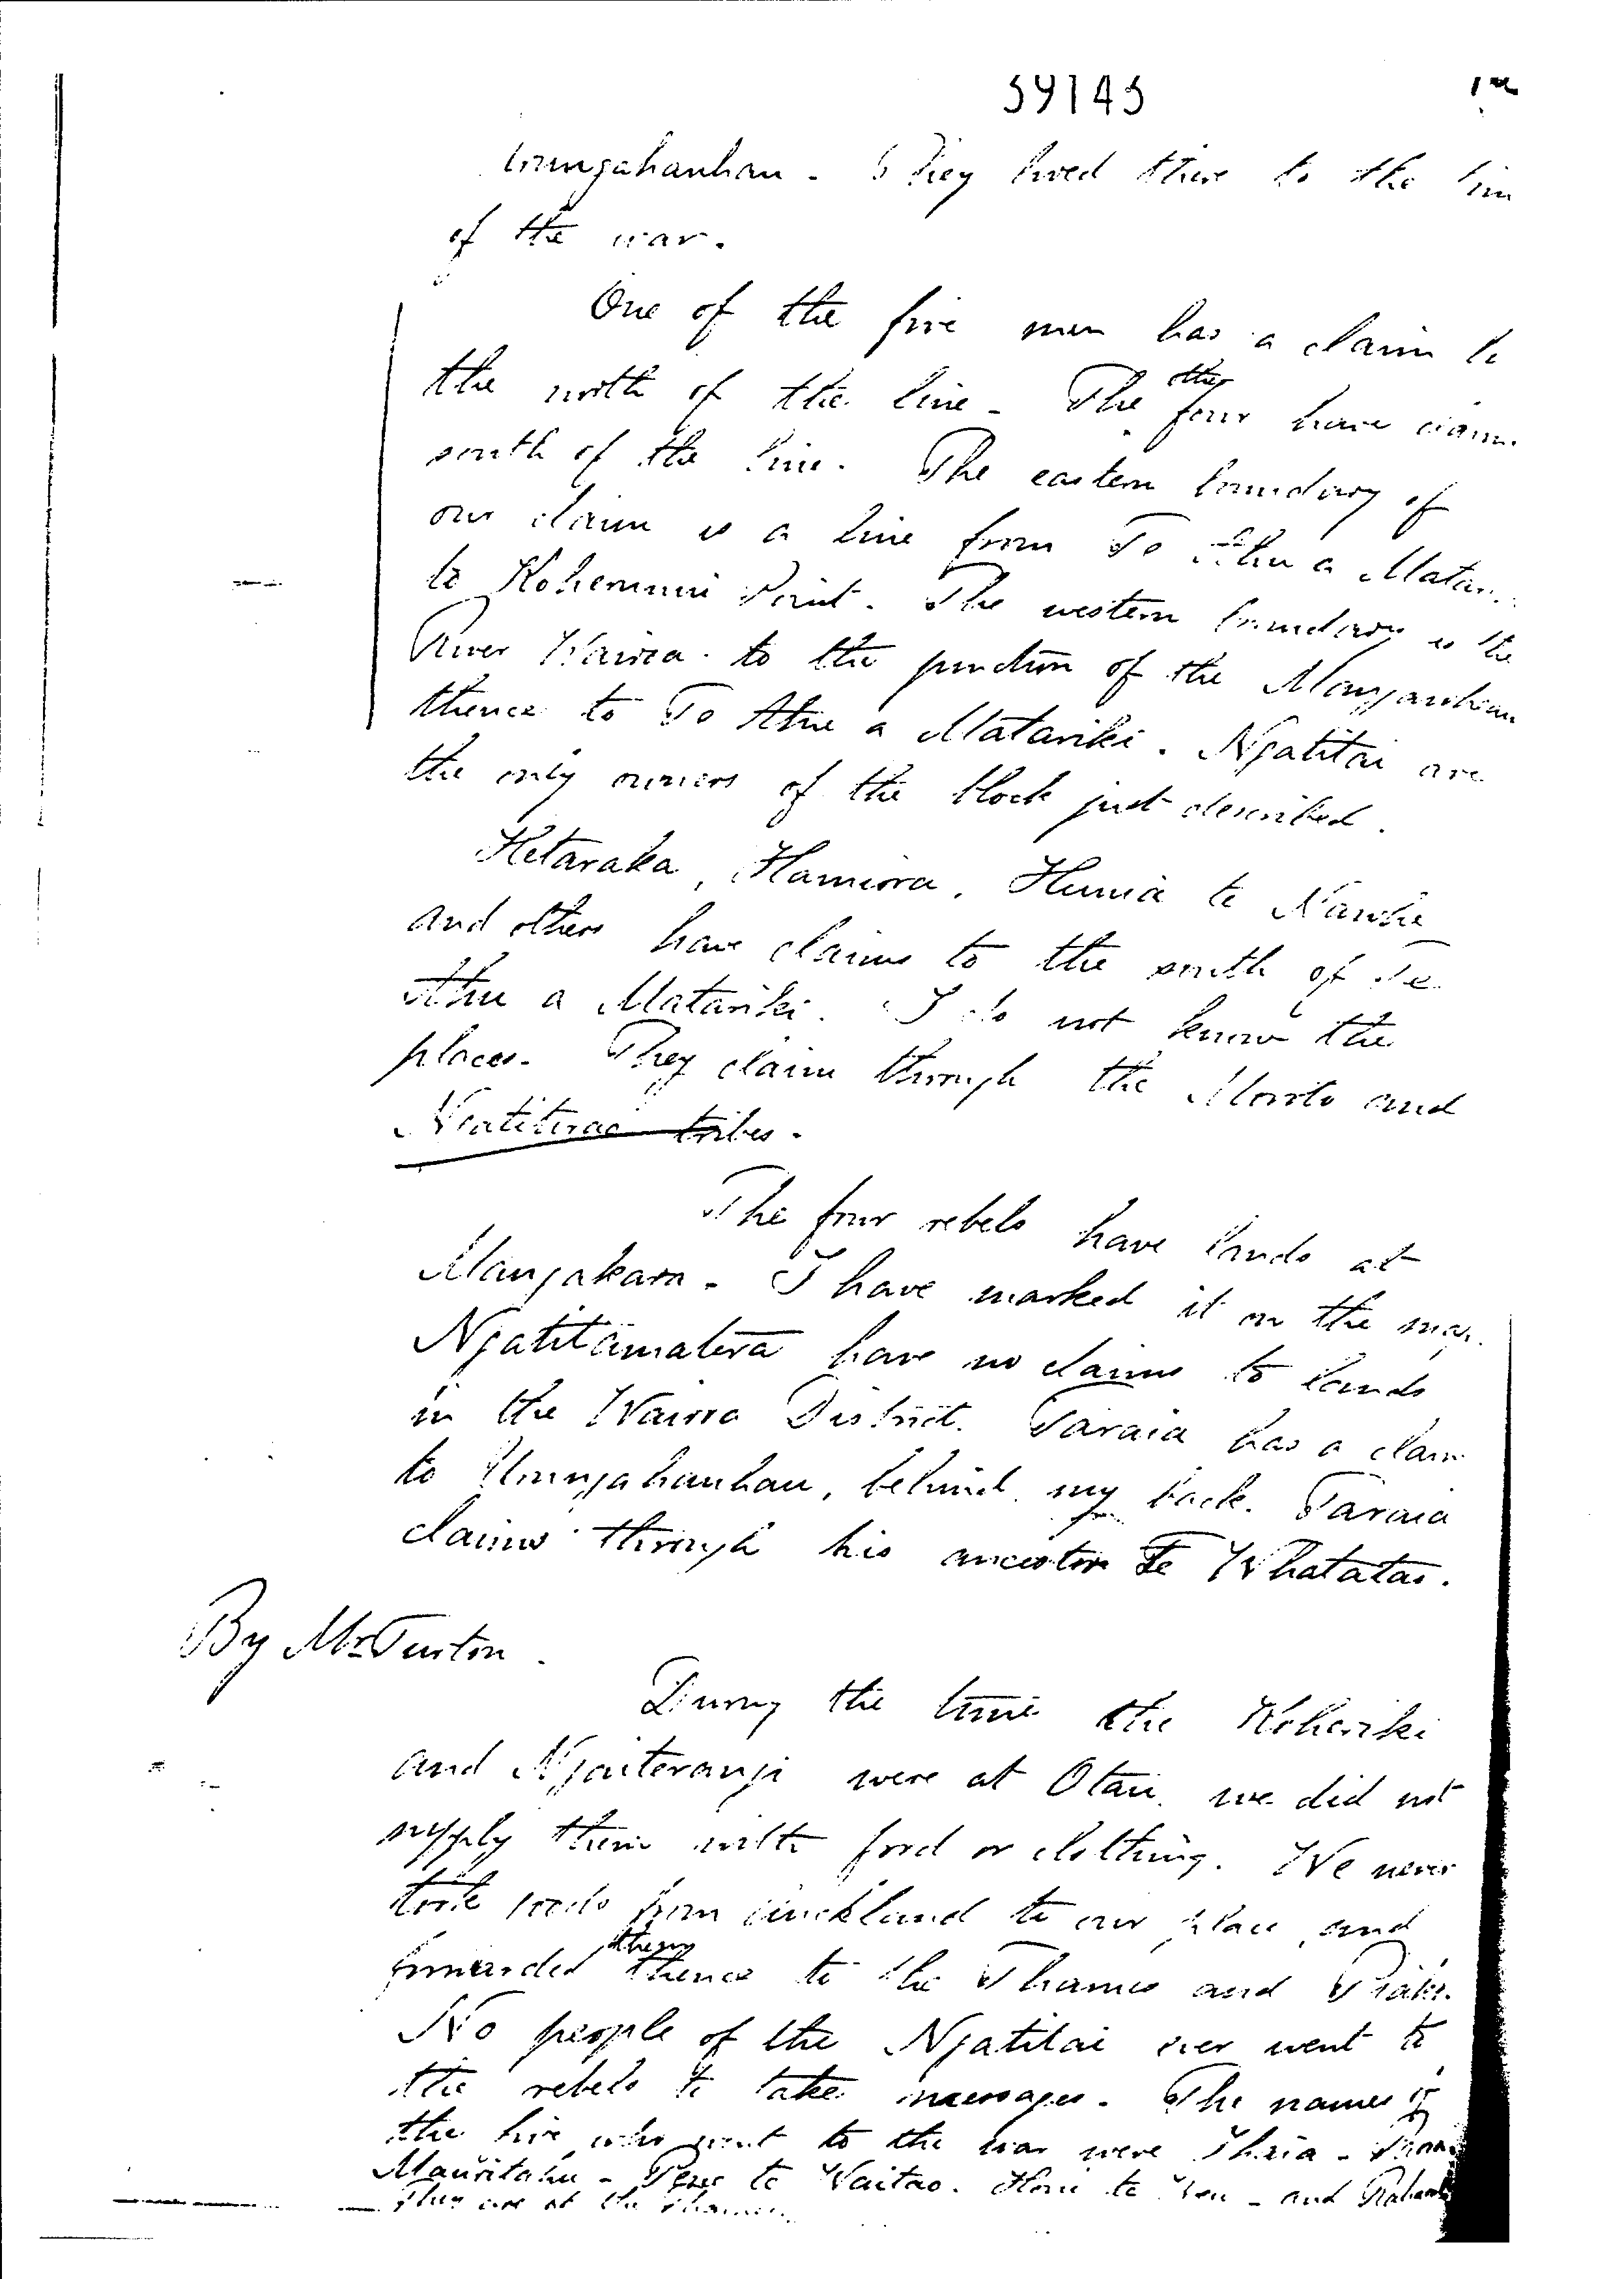 59145
Urungahauhau. They lived there to the
of the war.
One of the five men has a claim to
the north of the line - The other four have
south of the line. The eastern boundary of
our claim is a line from To Ahu a
to Koherunui Point. The western boundary is the
River Wairoa to the junction of the
thence to To Ahu a Matariki. Ngatitai are
the only owners of the block just described.
Hetaraka, Hamiora, Hunia te
and others have claims to the south of Te
Ahu a Matariki. I do not know the
places. They claim through the and
tribes.
The four rebels have lands at
Mangakara. I have marked it on the map.
Ngatitamatera have no claims to lands
in the Wairoa District. Taraia has a claim
to Urungahauhau, behind my back. Taraia
claims through his ancestor Te Whatatau.
By Mr Turton.
During the time the Koheriki
and Ngaiterangi were at Otau, we did not
supply them with food or clothing. We never
took goods from Auckland to our place and
forwarded them thence to the Thames and Piako.
No people of the Ngatitai ever went to
the rebels to take messages. The names of
the five who went to the war were Ihaia -
Mauritahu - te Waitao. Hori te - and
They are at the Thames.